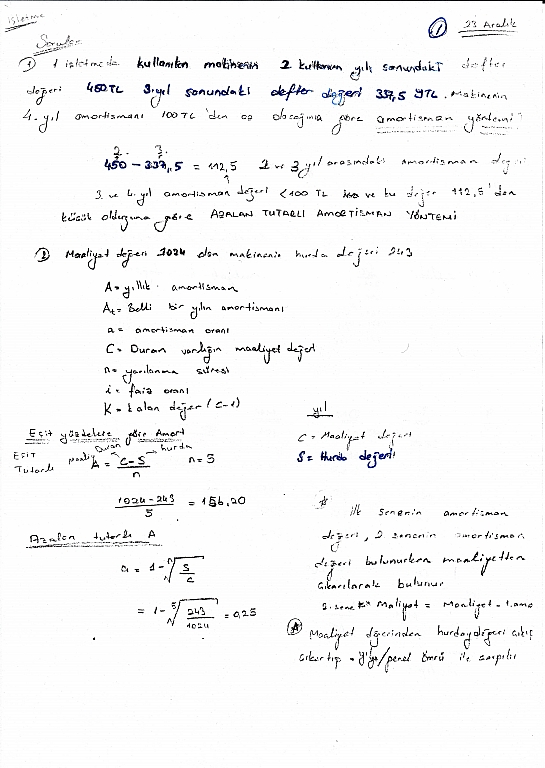 işletme
① 23 Aralık
Sorular
① 1 işletmede kullanılan makinenin 2 kullanım yılı sonundaki defter
değeri 450TL 3.yıl sonundaki defter değeri 337,5 YTL. Makinenin
4. yıl amortismanı 100 TL'den az olacağına göre amortisman yöntemi?
2. 3.
450 - 337,5 = 112,5 2 ve 3 yıl arasındaki amortisman değeri
3. ve 4. yıl amortisman değeri <100 TL ise ve bu değer 112,5'den
küçük olduğuna göre AZALAN TUTARLI AMORTİSMAN YÖNTEMİ
② Maaliyet değeri 1024 olan makinenin hurda değeri 243
A = yıllık amortisman
At = Belli bir yılın amortismanı
a = amortisman oranı
C = Duran varlığın maaliyet değeri
n = yararlanma süresi
i = faiz oranı
K = kalan değer (C-1)
yıl
C = Maaliyet değeri
S = Hurda değeri
Eşit yüzdelere göre Amort
Eşit Tutarlı
Duran
hurda
A = C-S / n n = 5
1024-243 / 5 = 156,20
Azalan tutarlı A
a = 1 - ⁿ√ S/C
= 1 - ⁵√ 243/1024 = 0,25
* ilk senenin amortisman
değeri, 2 senenin amortisman
değeri bulunurken maaliyetten
çıkarılarak bulunur
2. sene Maliyet = Maaliyet - 1.amo
Maaliyet değerinden hurda değeri
çıkartıp ile çarpılır